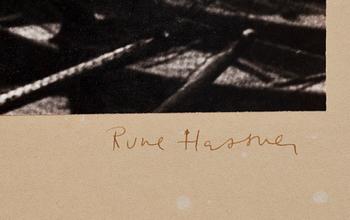 Rune Hassner